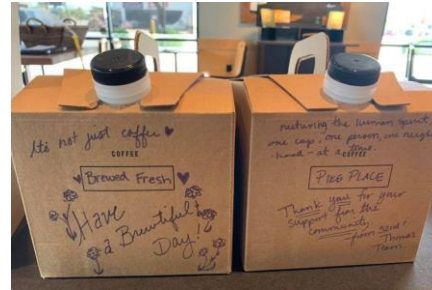 It's not just coffee
COFFEE
Brewed Fresh
Have
a Brewtiful
Day!
nurturing the human spirit,
one cup, one person, one neigh-
-hood- at a time.
COFFEE
PIKE PLACE
Thank you for your
support from the
community,
-from 32nd
Thomas
Team